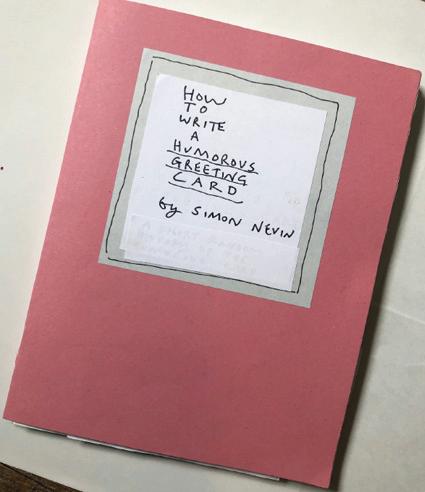 HOW
TO
WRITE
A
HUMOROUS
GREETING
CARD
by SIMON NEVIN
A SHORT